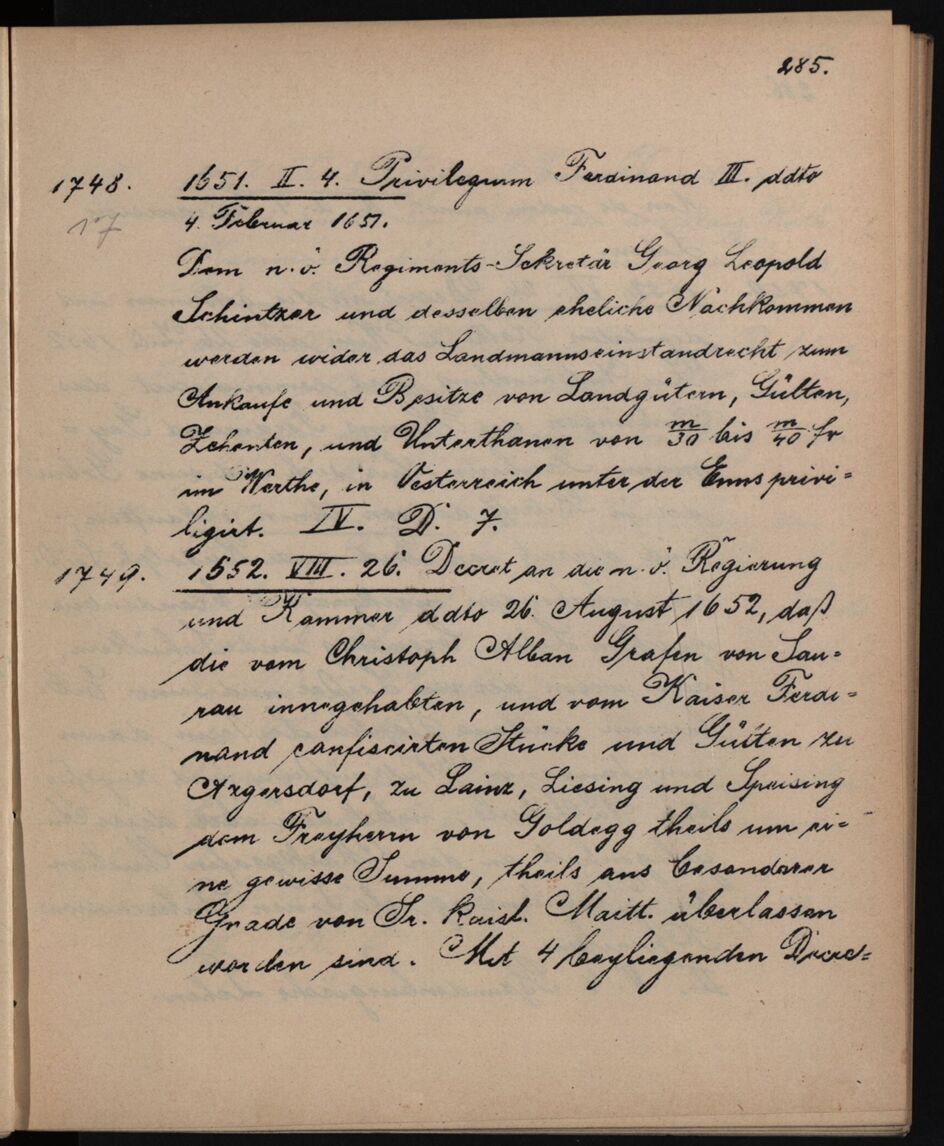 285.
1748. 1651. II. 4. Privilegium Ferdinand III. ddto
17 4. Februar 1651.
Dem n. ö. Regiments-Sekretär Georg Leopold
Schintzer und desselben eheliche Nachkommen
werden wider das Landmannseinstandrecht zum
Ankaufe und Besitze von Landgütern, Gülten,
Zehenten, und Unterthanen von m/30 bis m/40 fr
im Werthe, in Oesterreich unter der Enns privi=
ligirt. IV. D. 7.
1749. 1652. VIII. 26. Decret an die n. ö. Regierung
und Kammer ddto 26. August 1652, daß
die vom Christoph Alban Grafen von Sau=
rau innegehabten, und vom Kaiser Ferdi=
nand confiscirten Stücke und Gülten zu
Azgersdorf, zu Lainz, Liesing und Speising
dem Freyherrn von Goldegg theils um ei=
ne gewisse Summe, theils aus besonderer
Gnade von Sr. kaisl. Maitt. überlassen
worden sind. Mit 4 beyliegenden Decre=